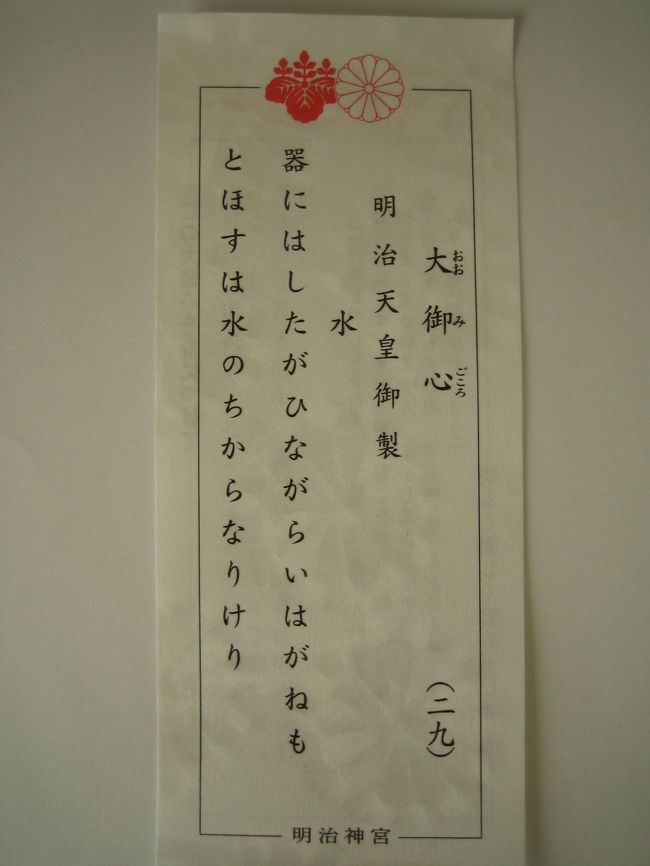 大御心 (二九)
おおみごころ
明治天皇御製
水
器にはしたがひながらいはがねも
とほすは水のちからなりけり
明治神宮